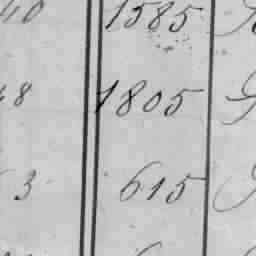 40 1585
48 1805
3 615